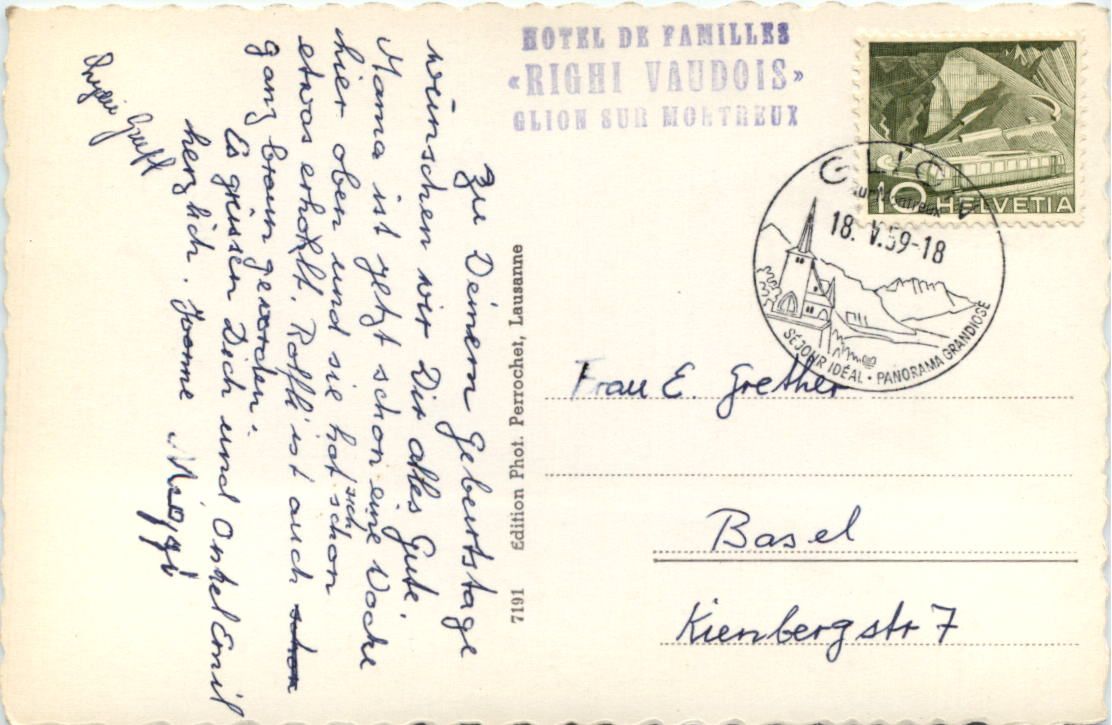 HOTEL DE FAMILLES
«RIGHI VAUDOIS»
GLION SUR MONTREUX
10 HELVETIA
GLION
sur Montreux
18. V.59-18
SÉJOUR IDÉAL • PANORAMA GRANDIOSE
Zu Deinem Gebertstage
wünschen wir Dir alles Gute.
Mama ist jetzt schon eine Woche
hier oben und sie hat sich schon
etwas erholt. Rolfli ist auch schon
ganz braun geworden.
Es grüssen Dich und Onkel Emil
herzlich.
7191 Edition Phot. Perrochet, Lausanne
Frau E. Grether
Basel
Kienbergstr 7